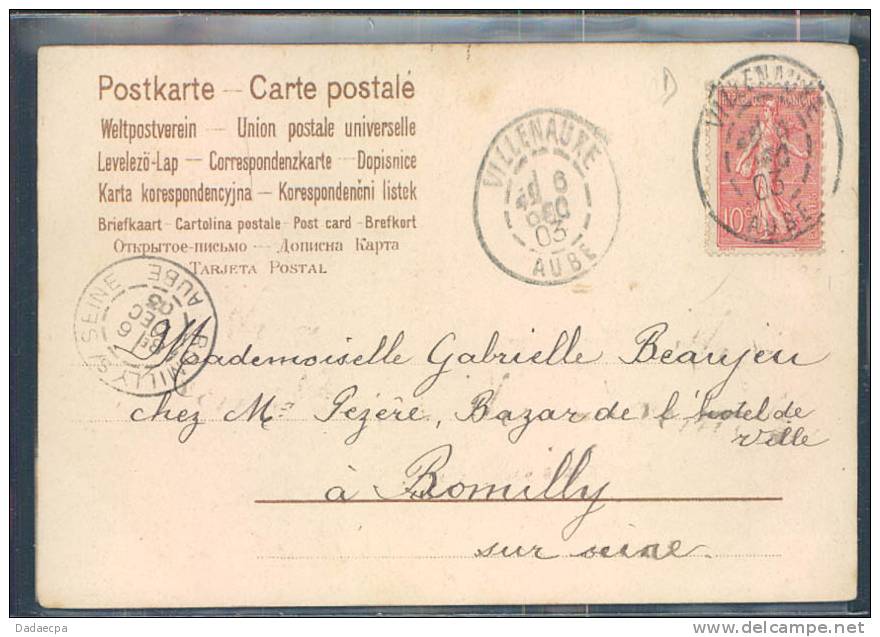 Postkarte — Carte postale
Weltpostverein — Union postale universelle
Levelező-Lap — Correspondenzkarte — Dopisnice
Karta korespondencyjna — Korespondenčni listek
Briefkaart — Cartolina postale — Post card — Brefkort
Открытое-письмо — Дописна Карта
TARJETA POSTAL
VILLENAUXE
6
DEC
03
AUBE
VILLENAUXE
6
DEC
03
AUBE
10c
ROMILLY S/ SEINE AUBE
6
DEC
03
Mademoiselle Gabrielle Beaujeu
chez Mr Pezère, Bazar de l'hotel de
ville
à Romilly
sur seine
Dadaecpa
www.delcampe.net